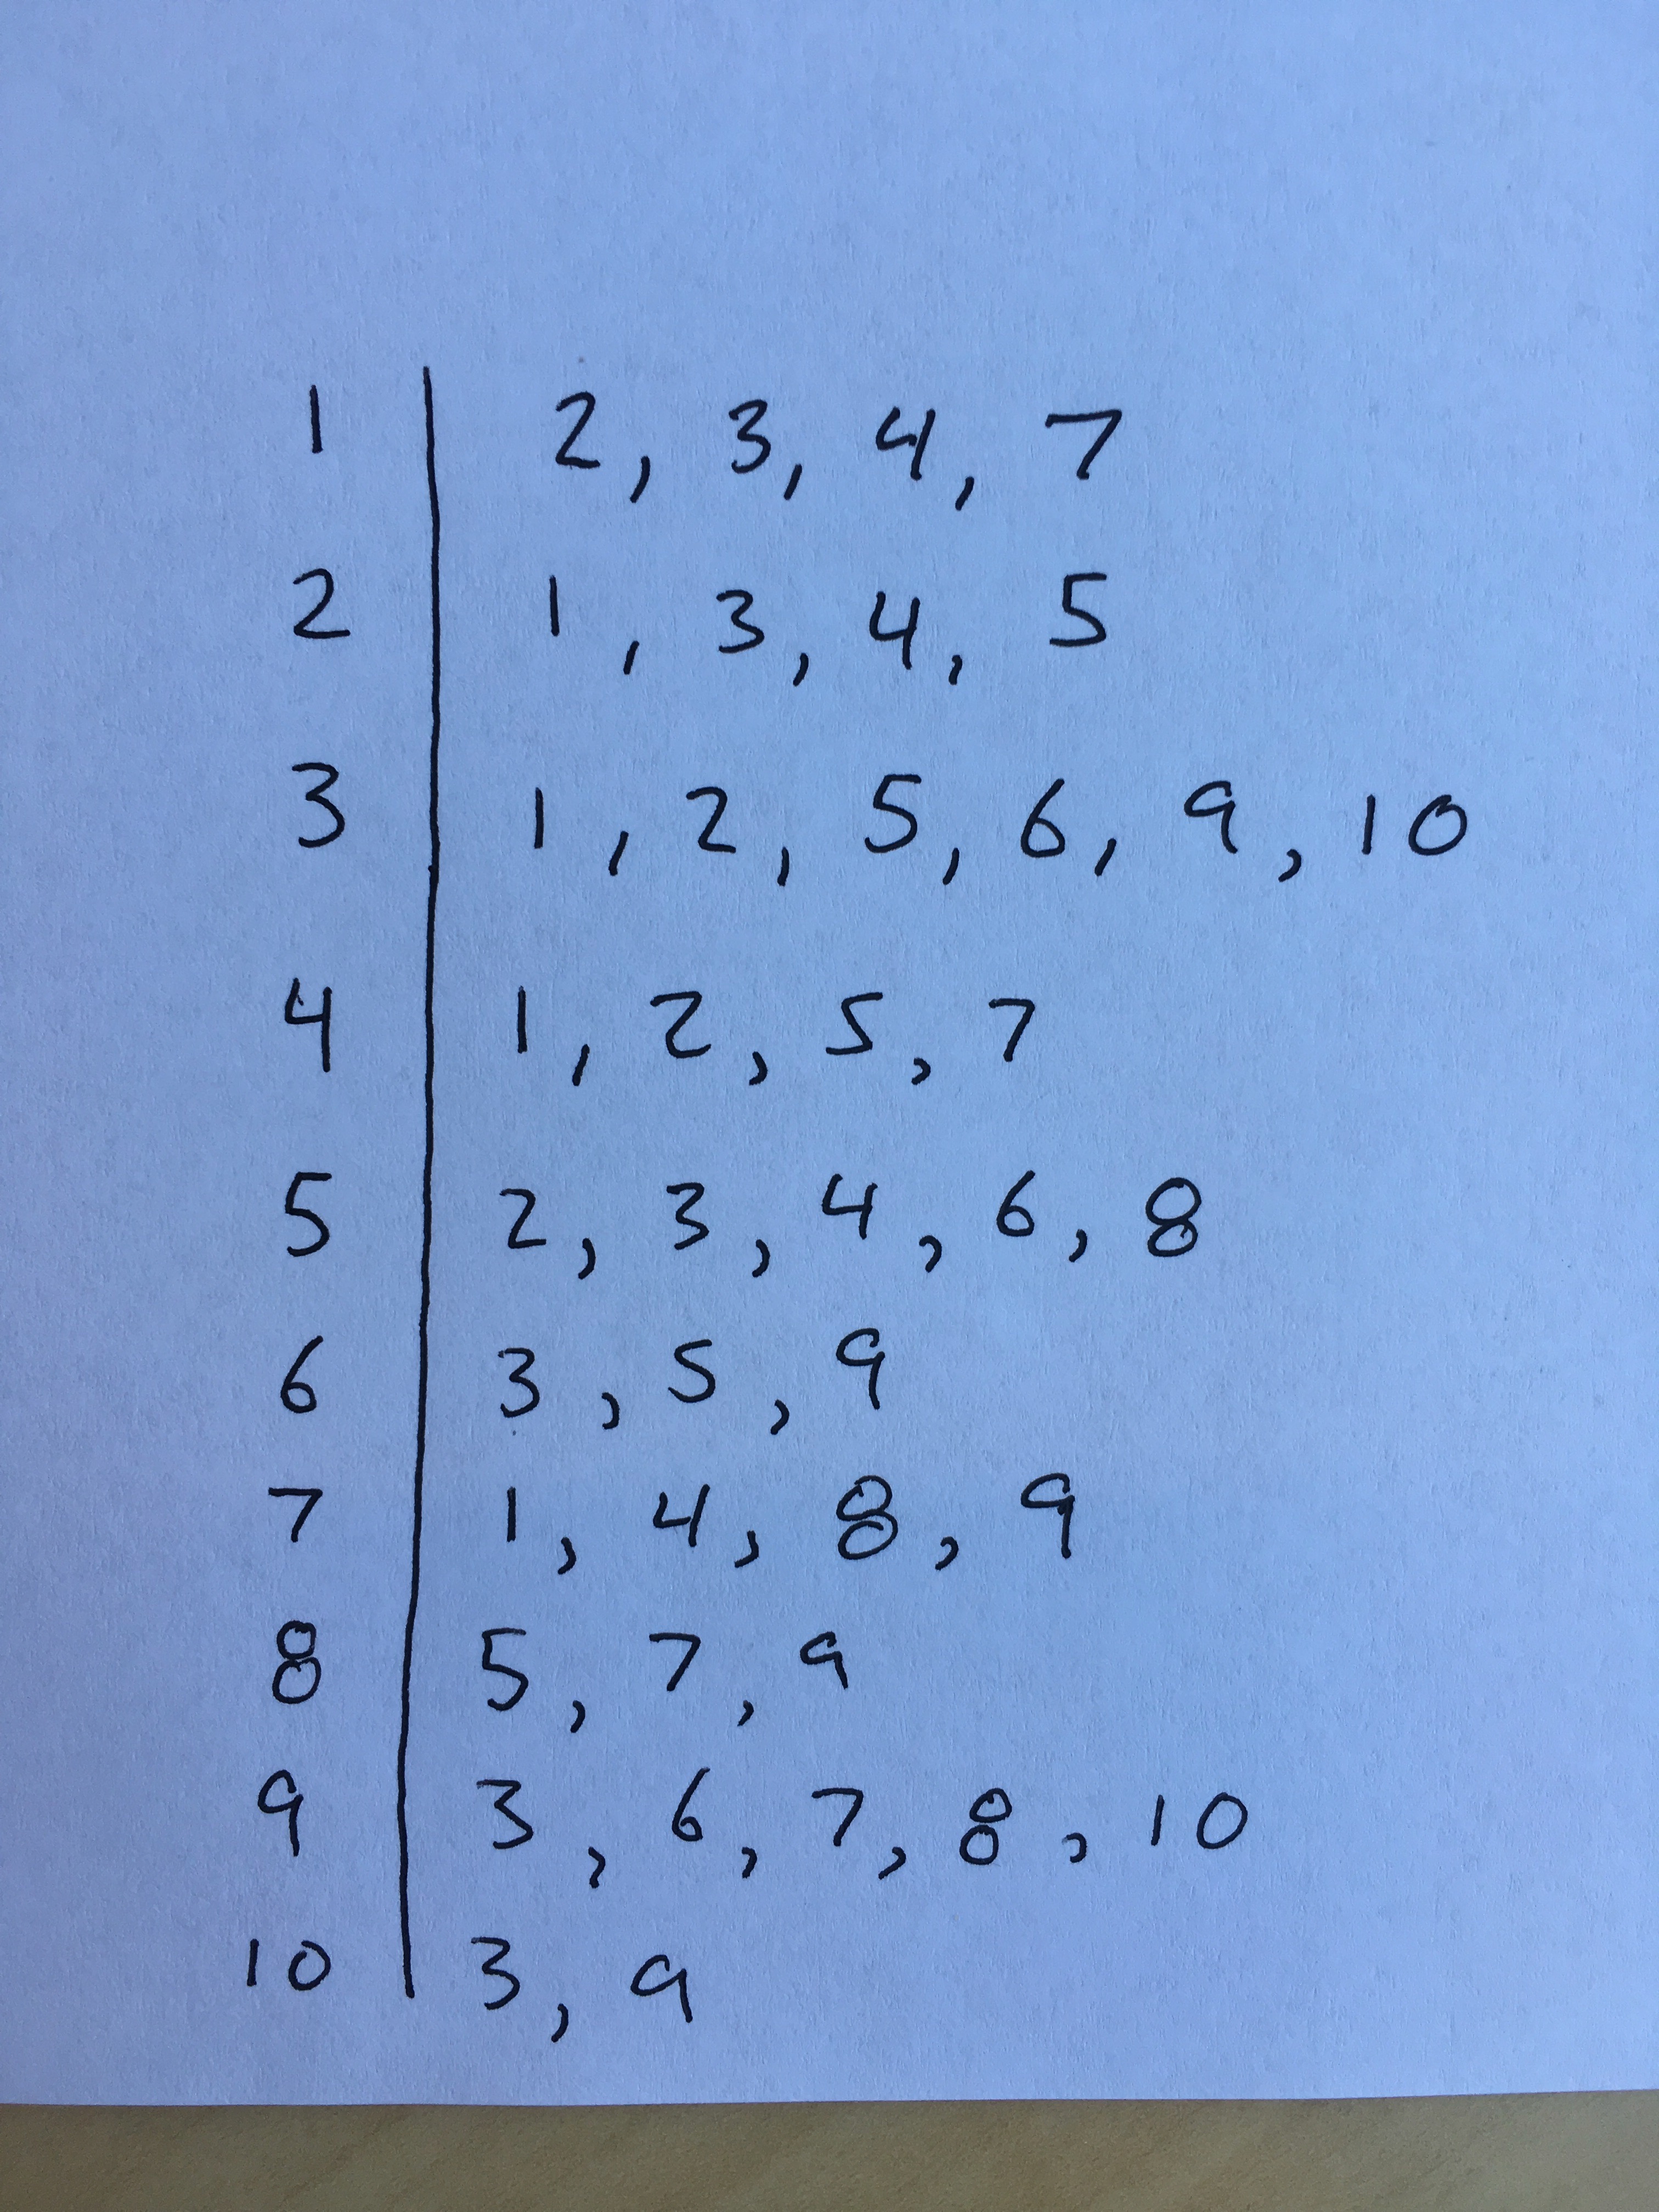 1 | 2, 3, 4, 7
2 | 1, 3, 4, 5
3 | 1, 2, 5, 6, 9, 10
4 | 1, 2, 5, 7
5 | 2, 3, 4, 6, 8
6 | 3, 5, 9
7 | 1, 4, 8, 9
8 | 5, 7, 9
9 | 3, 6, 7, 8, 10
10 | 3, 9